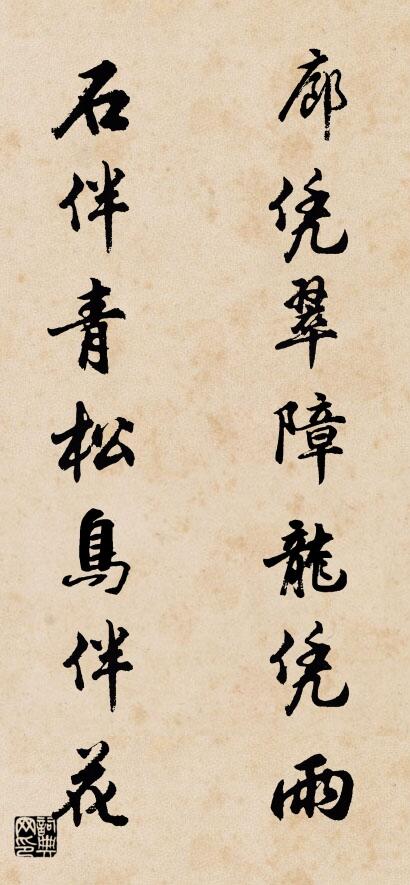 廊凭翠障龍凭雨
石伴青松鳥伴花
詞典网印